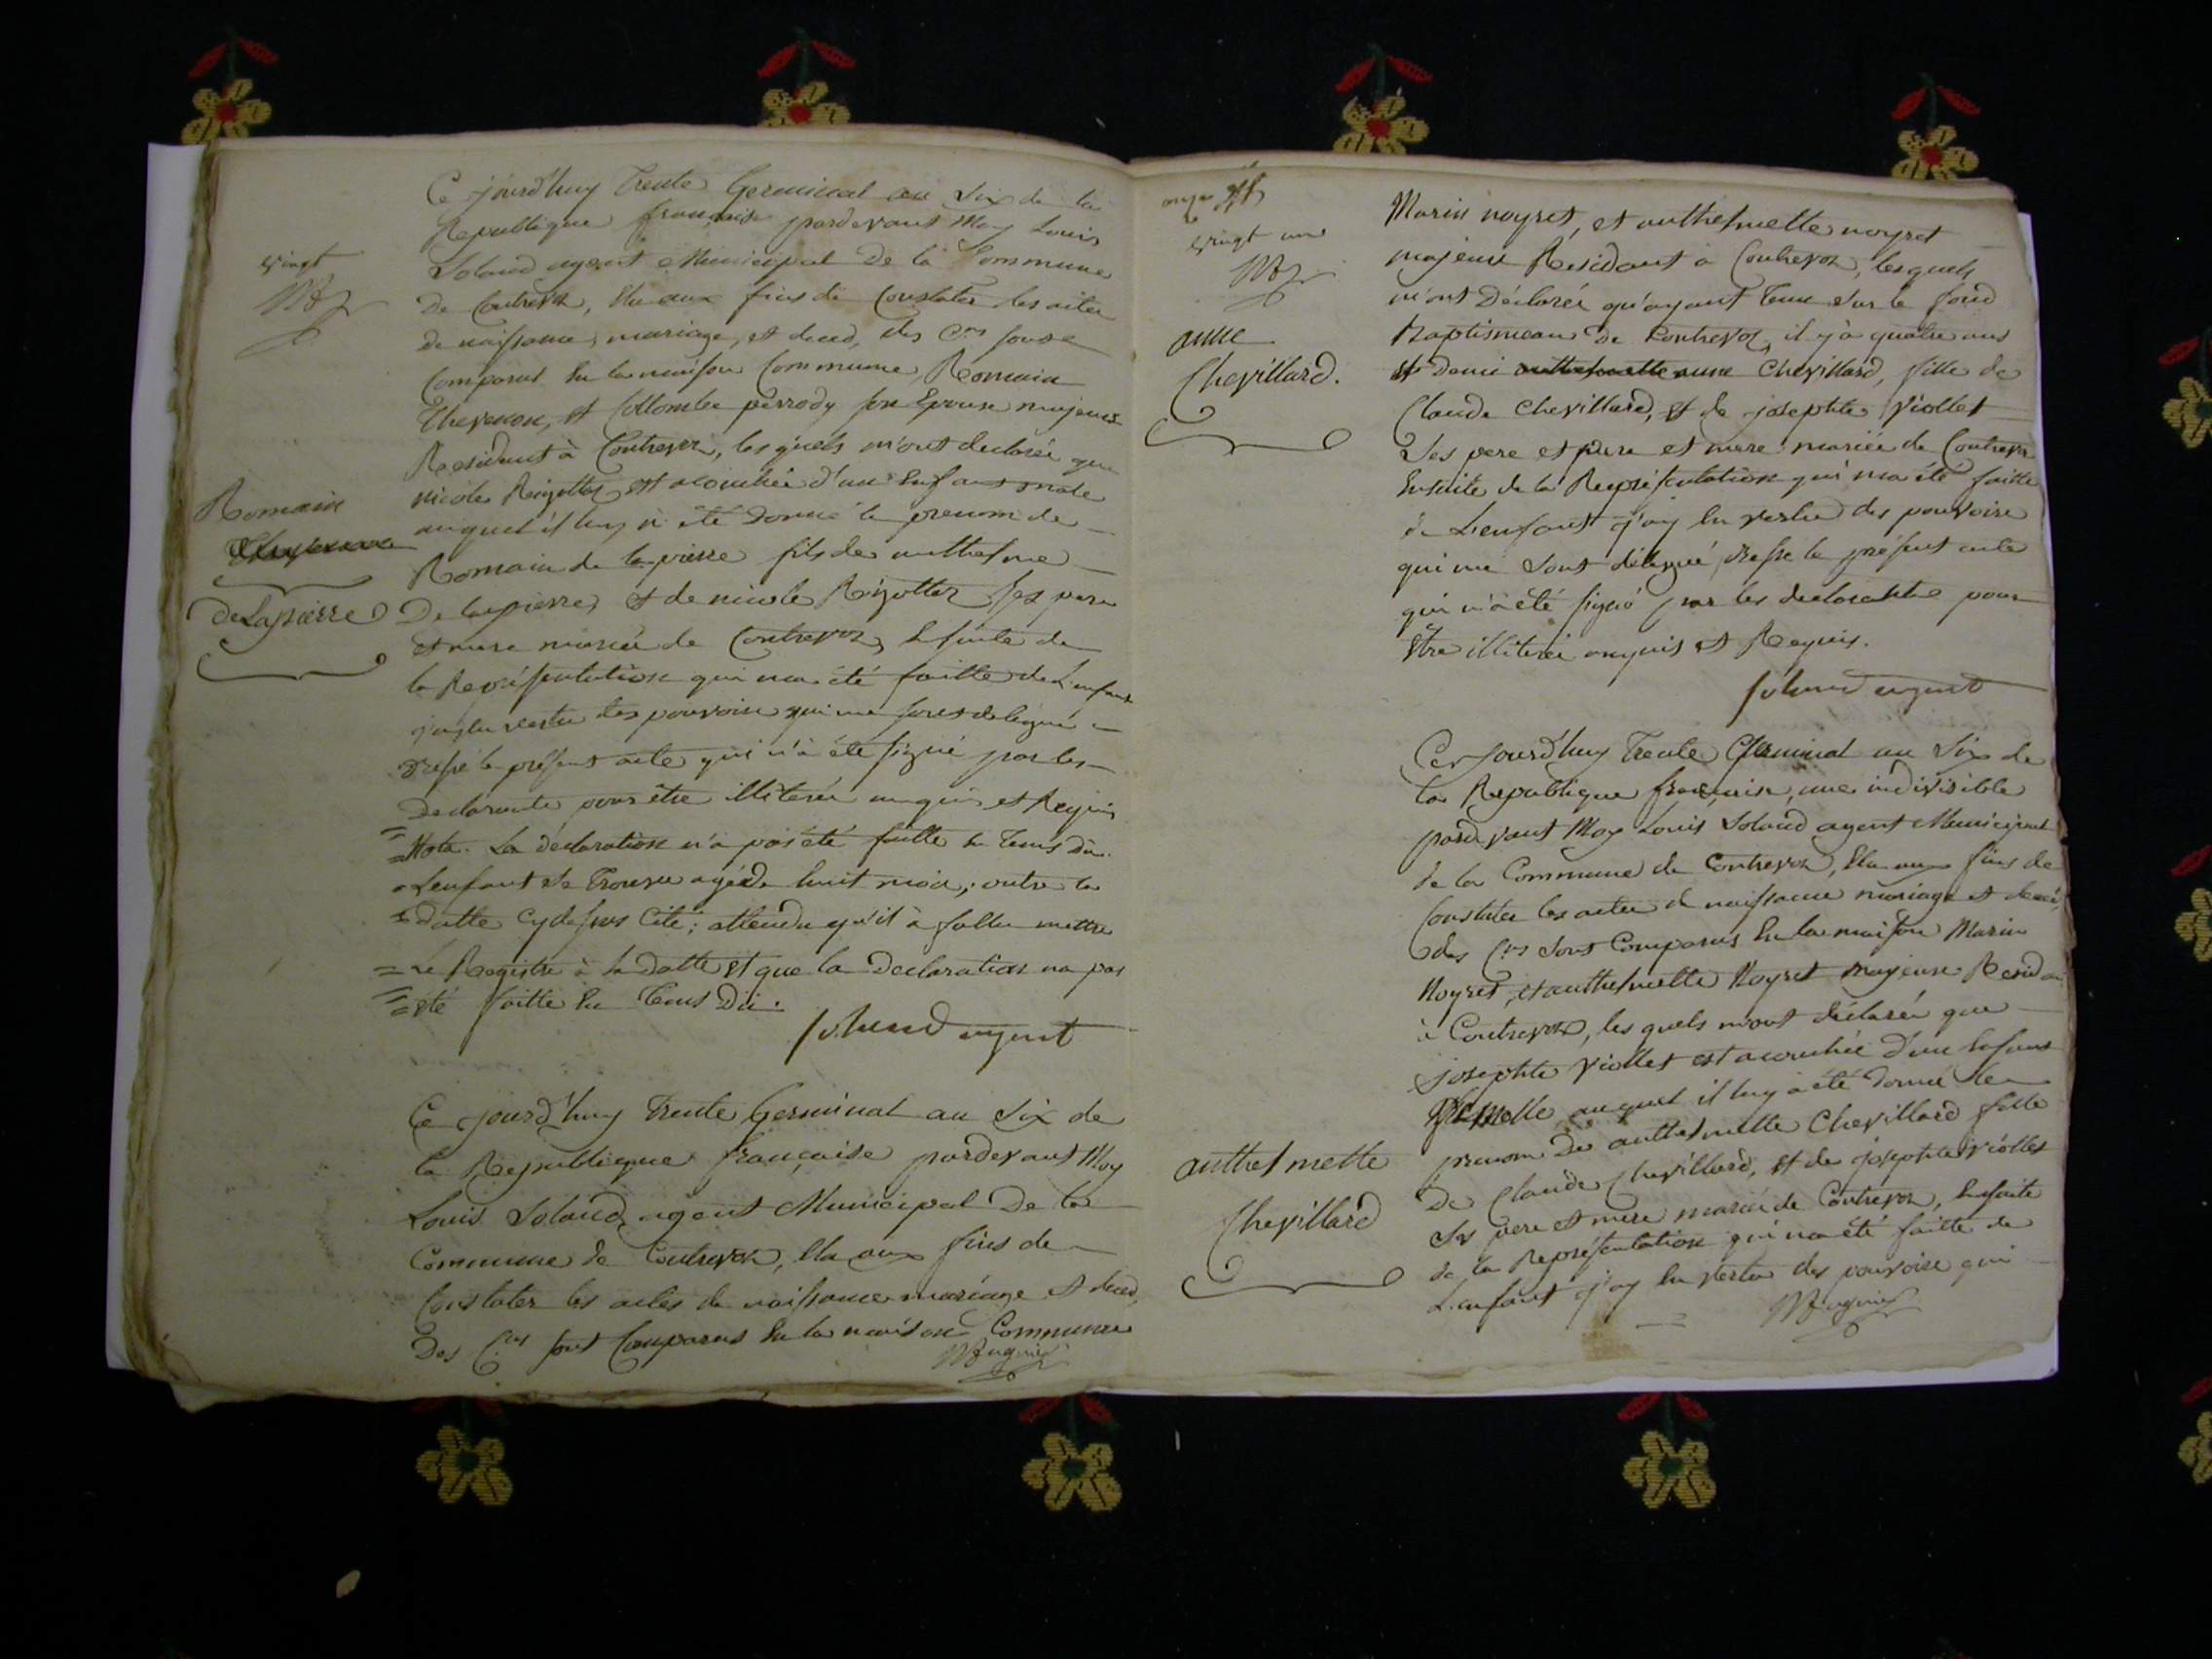 vingt
Ce jourd'huy trente Germinal an Six de la
Republique française pardevant Moy Louis
Soland agent Municipal De la Commune
De Contrevoz, Elu aux fins de Constater les actes
de naissance, mariage, et deces, des C.ns sont
Comparus En la maison Commune Romain
Thevenon, et Collombe perrody son Epouse majeurs
Residant à Contrevoz, les quels m'ont declarée que
nicole Reigottier est acouchée d'un Enfant male
auquel il luy à été Donné le prenom de
Romain de la pierre fils de anthelme
De lapierre, et de nicole Rigottier Ses pere
et mere mariée de Contrevoz, Ensuite de
la Représentation qui ma été faitte de L'enfant
j'ay En vertu des pouvoirs qui me sont delegué
dressé le present acte qui n'à été signé par les
Declarants pour être illiterée enquis et Requis
Nota. La déclaration n'a pas été faitte En tems Dû.
L'enfant se trouve agé de huit mois, outre la
datte Cy dessus Cité; attendu qu'il à fallu mettre
Le Registre à la datte et que la Declaration na pas
été faitte En tems Dû.
Soland agent
Romain
DeLapierre
Ce jourd'huy trente Germinal an Six de
la Republique française pardevant Moy
Louis Soland agent Municipal De la
Commune de Contrevoz, Elu aux fins de
Constater les actes de naissance mariage et deces,
Des C.ns sont Comparus En la maison Commune
Mugnier
vingt une
anne
Chevillard.
Marin noyret, et anthelmette noyret
majeurs Residant à Contrevoz, lesquels
m'ont Déclarée qu'ayant tenu sur le fond
Baptismeau De Contrevoz, il y à quatre ans
et Demi anthelmette anne Chevillard, fille de
Claude Chevillard, et de josephte Viollet
Ses pere et pere et mere mariée de Contrevoz
Ensuite de la Représentation qui ma été faitte
de L'enfant j'ay En vertu des pouvoirs
qui me sont délegué, dresse le présent acte
qui n'à été signé par les declarants pour
être illiterée enquis et Requis.
Soland agent
Ce jourd'huy trente Germinal an Six de
la Republique française, une indivisible
pardevant Moy Louis Soland agent Municipal
de la Commune de Contrevoz, Elu aux fins de
Constater les actes de naissance mariage et decès,
des C.ns Sont Comparus En la maison Marin
Noyret, et anthelmette Noyret majeurs Residant
à Contrevoz, les quels m'ont déclarée que
josephte Viollet est acouchée d'un Enfant
femelle auquel il luy à été donné le
prenom De anthelmette Chevillard fille
De Claude Chevillard, et de josephte Viollet
Ses pere et mere mariée de Contrevoz, Ensuite
de la Représentation qui ma été faitte de
L'enfant j'ay En vertu des pouvoirs qui
Mugnier
anthelmette
Chevillard